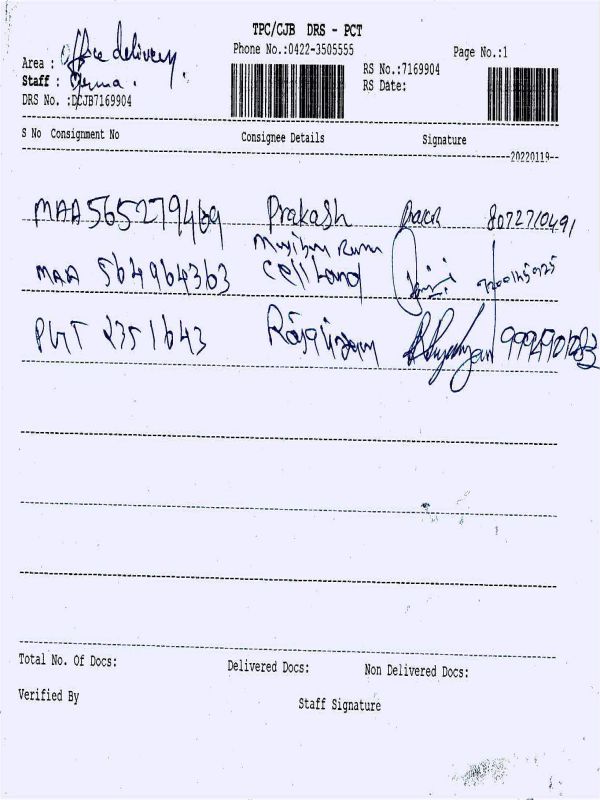 TPC/CJB DRS - PCT
Phone No.:0422-3505555
Page No.:1
Area : office delivery
Staff :
RS No.:7169904
RS Date:
DRS No. :DCJB7169904
S No Consignment No Consignee Details Signature
--20220119--
MAA565279469 Prakash 8072710491
MAA 564964363
PGT 2351643
Total No. Of Docs: Delivered Docs: Non Delivered Docs:
Verified By Staff Signature